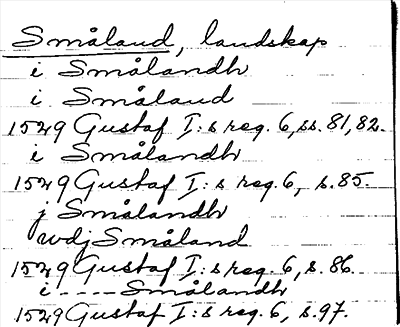 Småland, landskap
i Smålandh
i Småland
1529 Gustaf I:s reg. 6, ss. 81, 82.
i Smålandh
1529 Gustaf I:s reg. 6, s. 85.
j Smålandh
wdj Småland
1529 Gustaf I:s reg. 6, s. 86.
i ---- Smålandh
1529 Gustaf I:s reg. 6, s. 97.